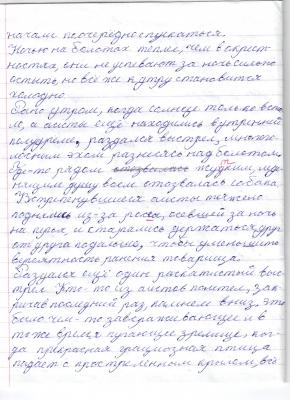 начали поочередно спускаться.
Ночью на болотах теплее, чем в окрест-
ностях, они не успевают за ночь сильно
остыть, но всё же к утру становится
холодно.
Рано утром, когда солнце только вста-
ло, а аисты ещё находились в утренней
полудреме, раздался выстрел, многого-
лосным эхом разнеслась над болотом.
Где-то рядом жутким, ледe-
нащим душу воем отозвалась собака.
Встрепенувшиеся аисты тяжело
поднялись из-за росы, осевшей за ночь
на перьях и старались держаться друг
от друга подальше, чтобы уменьшить
вероятность ранения товарища.
Раздался ещё один раскатистый выс-
трел. Кто-то из аистов полетел, зак-
ричав последний раз, камнем вниз. Это
было чем-то завораживающее и в
то же время пугающее зрелище, ког-
да прекрасная грациозная птица
падает с простреленным крылом, всё